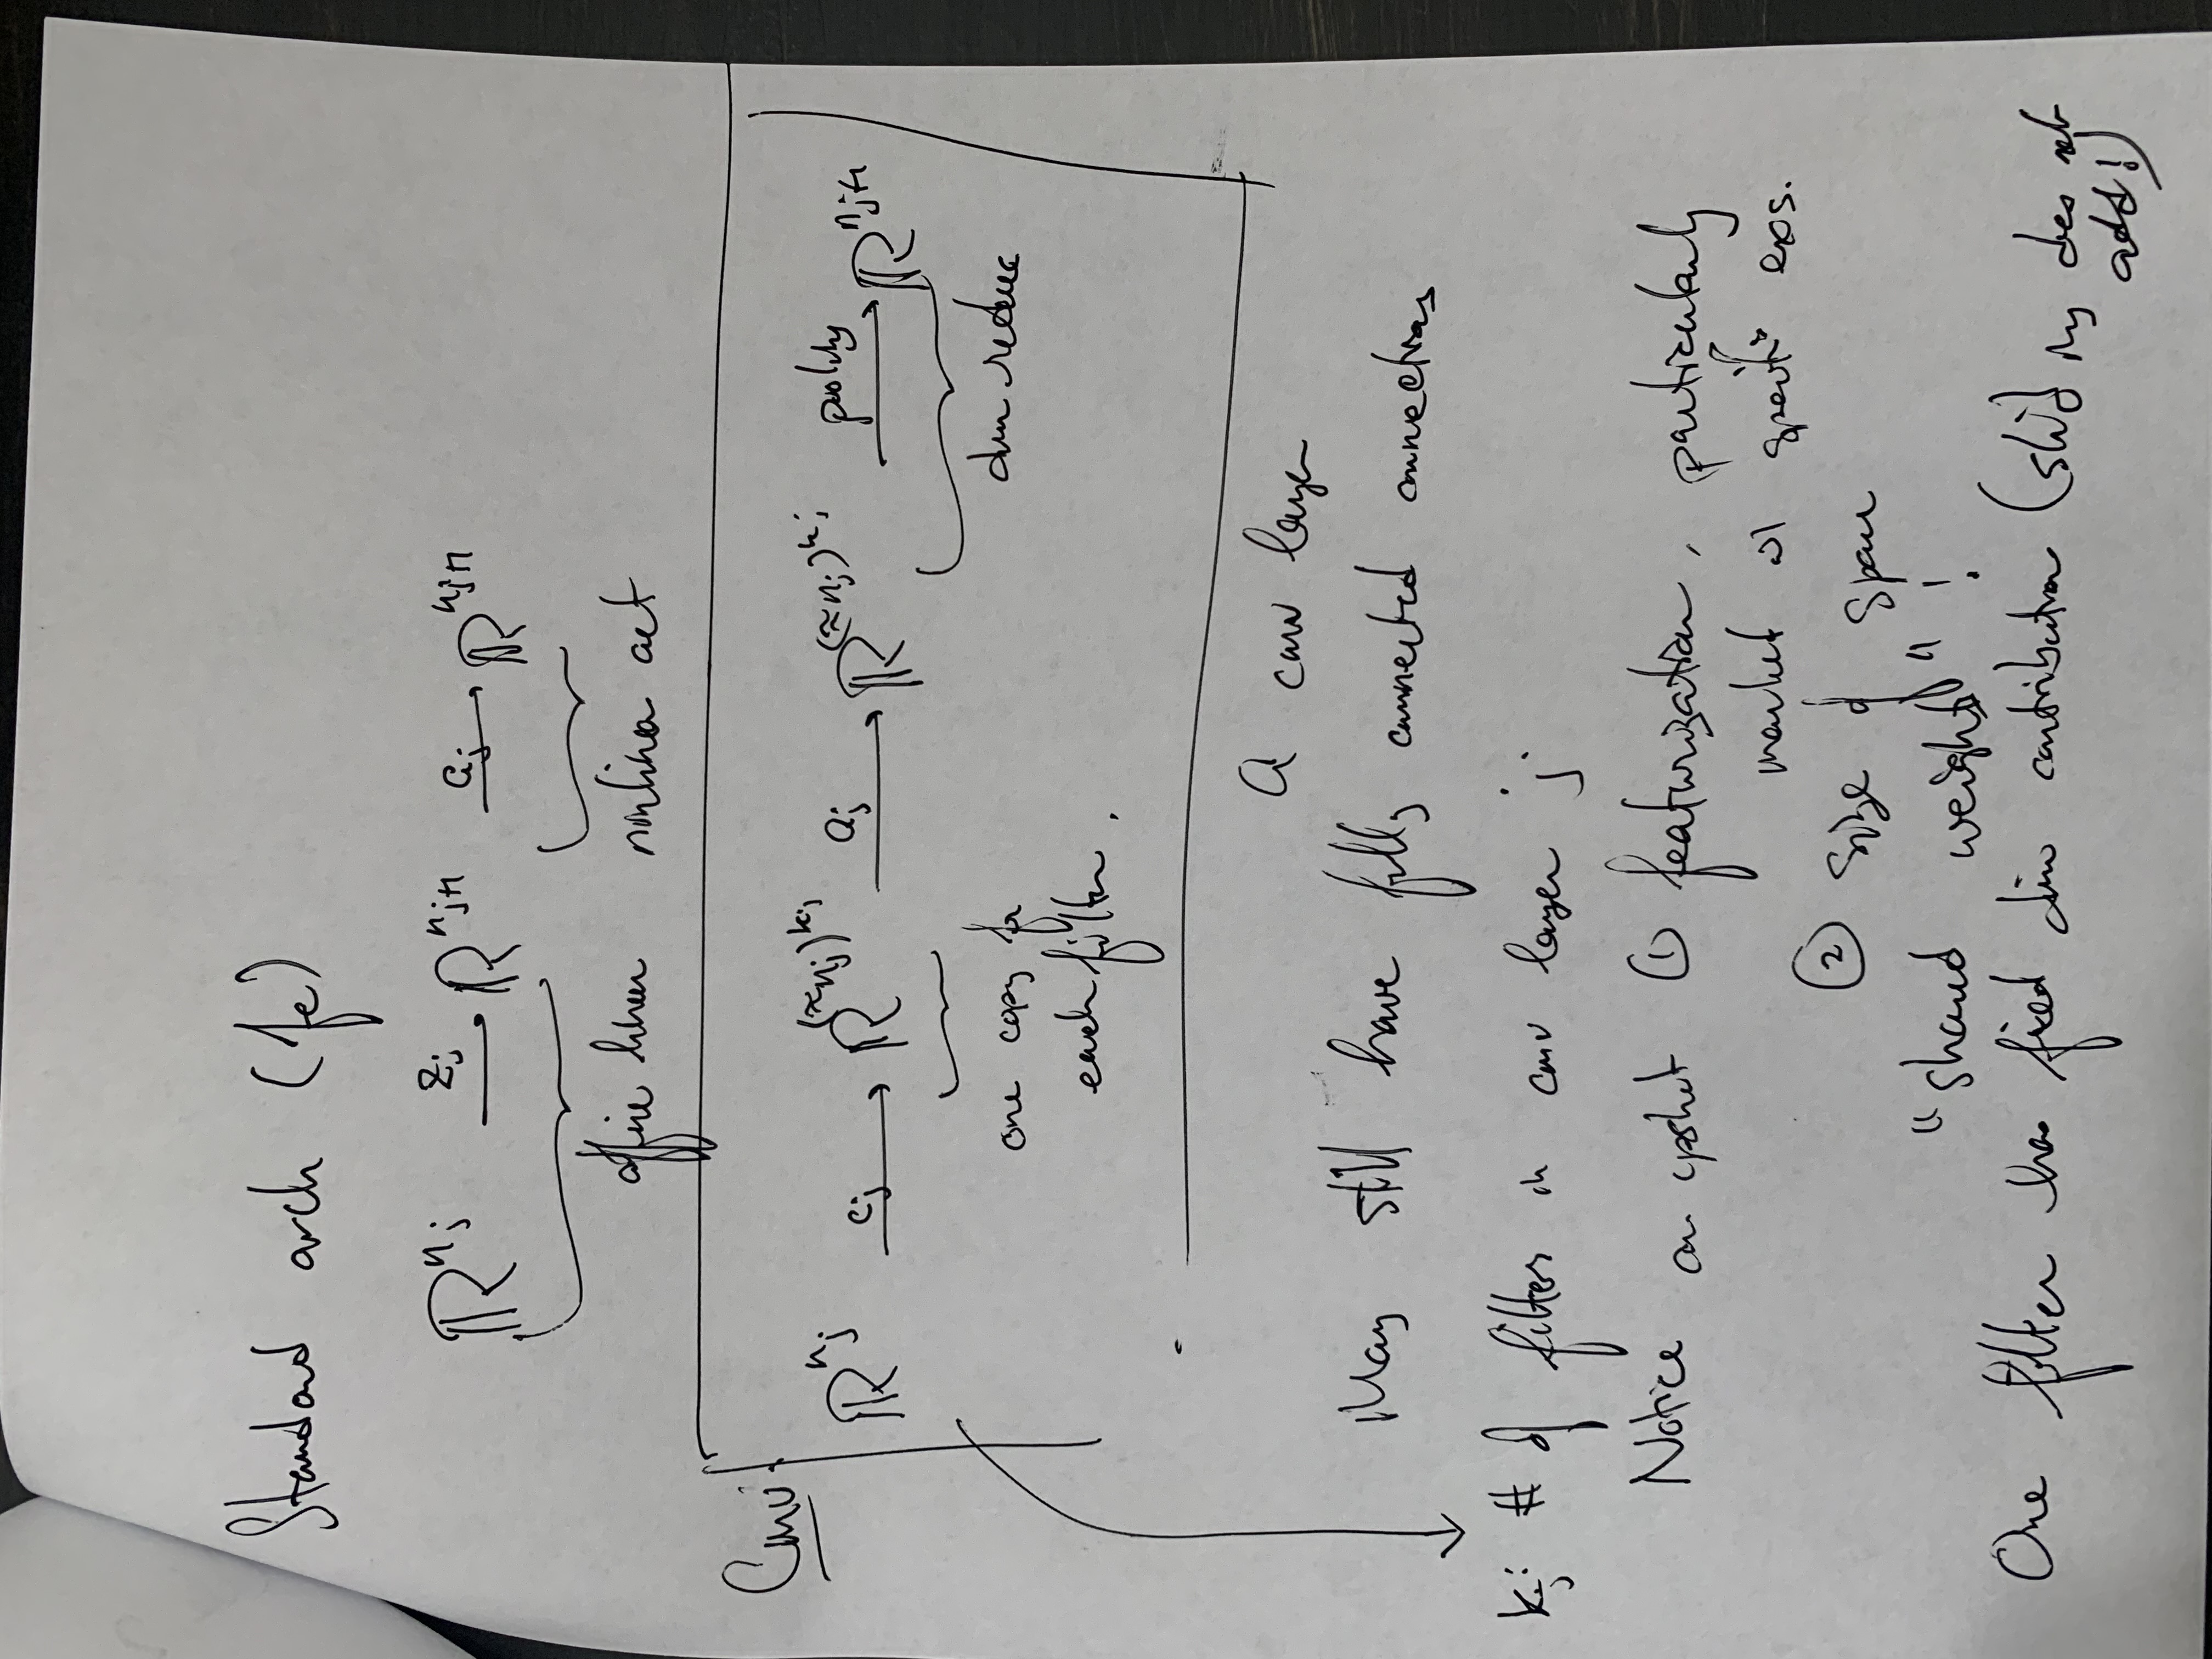 Standard arch (fc)
ℝ^{n_j} →^{z_j} ℝ^{n_{j+1}} →^{a_j} ℝ^{n_{j+1}}
affine linear nonlinear act
Conv:
ℝ^{n_j} →^{c_j} ℝ^{(≈n_j)^{k_j}} →^{a_j} ℝ^{(≈n_j)^{k_j}} →^{pooling} ℝ^{n_{j+1}}
one copy for dim reduce
each filter.
A conv layer
May still have fully connected connections
k_j: # of filters in conv layer j
Notice an upshot ① featurization, particularly
market w/ specific exs.
② size of space
"shared weights"!
One filter has fixed dim contribution (sliding does not
add!)